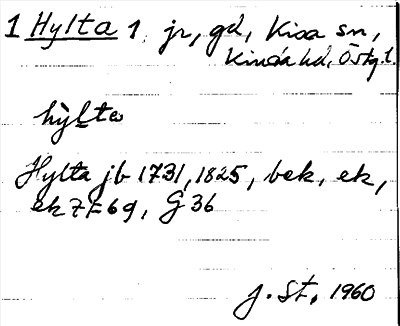 1 Hylta 1, jr, gd, Kisa sn,
Kinda hd, Östg.l.
hy̆lta
Hylta jb 1731, 1825, bek, ek,
ek 7F6g, G 36
J. St, 1960